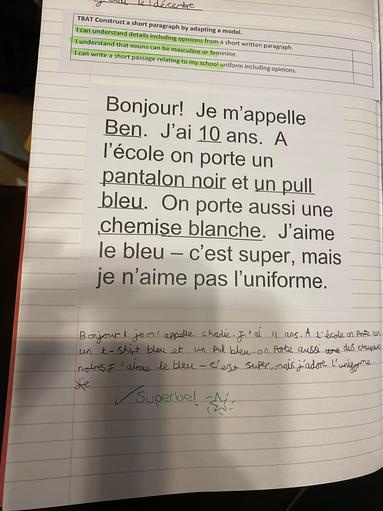 le 1 décembre
TBAT Construct a short paragraph by adapting a model.
I can understand details including opinions from a short written paragraph.
I understand that nouns can be masculine or feminine.
I can write a short passage relating to my school uniform including opinions.
Bonjour! Je m'appelle
Ben. J'ai 10 ans. A
l'école on porte un
pantalon noir et un pull
bleu. On porte aussi une
chemise blanche. J'aime
le bleu – c'est super, mais
je n'aime pas l'uniforme.
Bonjour! je m'appelle charlie. J'ai 11 ans. A l'école on Porte un
un t-shift bleu et un Pul bleu. on Porte aussi une des
noirs. J'aime le bleu – c'est super, mais j'adore l'uniforme.
je
Superbe!